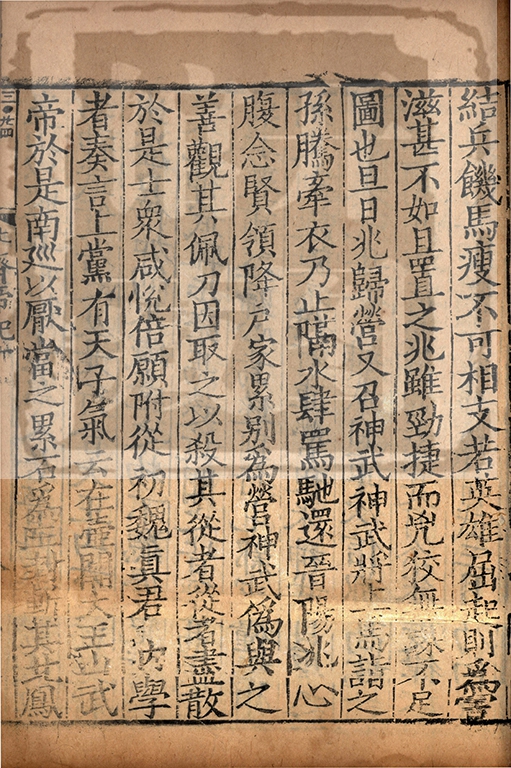 結兵饑馬瘦不可相支若英雄屈起則爲害
滋甚不如且置之兆雖勁捷而兇狡無謀不足
圖也旦日兆歸營又召神武神武將上馬詣之
孫騰牽衣乃止隔水肆罵馳還晉陽兆心
腹念賢領降戶家累別爲營神武僞與之
善觀其佩刀因取之以殺其從者從者盡散
於是士衆咸悅倍願附從初魏眞君 學
者奏言上黨有天子氣云在壺關大王山武
帝於是南巡以厭當之累石爲 斬其北鳳